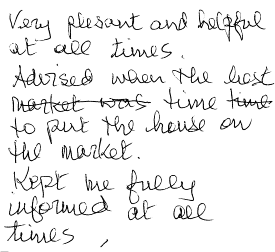 Very plesant and helpful
at all times.
Advised when the best
~~market was~~ time ~~time~~
to put the house on
the market.
Kept me fully
informed at all
times.